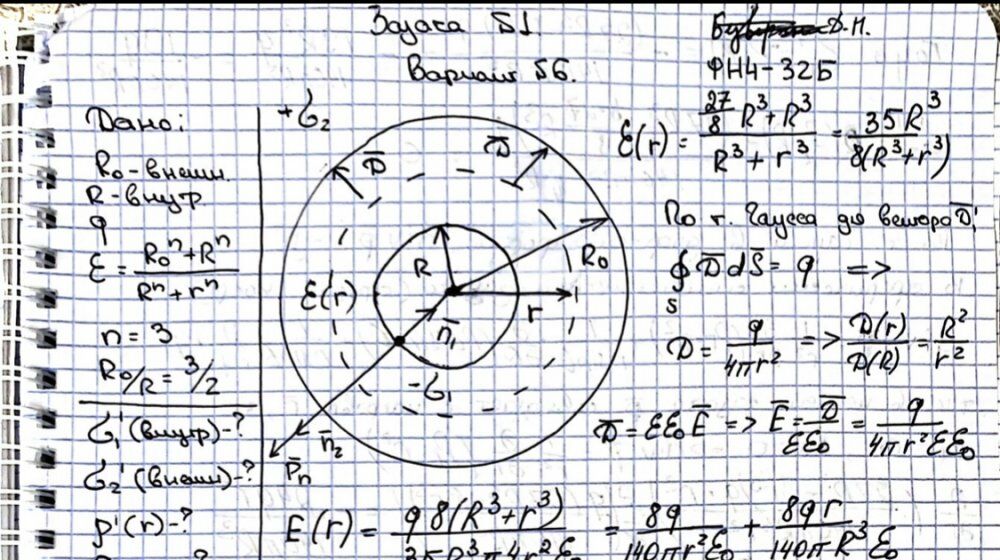 Задача Б1.
Д.Н.
Вариант 56.
ФН4-32Б
Дано:
R₀ - внешн.
R - внутр
q
ε = (R₀ⁿ + Rⁿ) / (Rⁿ + rⁿ)
n = 3
R₀/R = 3/2
σ₁' (внутр) - ?
σ₂' (внешн) - ?
ρ'(r) - ?
+σ₂
D̅
D̅
R
R₀
ε(r)
r
n̅₁
-σ₁
n̅₂
P̅n
ε(r) = (27/8 R³ + R³) / (R³ + r³) = 35R³ / 8(R³ + r³)
По т. Гаусса для вектора D̅:
∮ D̅ dS̅ = q =>
S
D = q / 4πr² => D(r) / D(R) = R² / r²
D̅ = εε₀E̅ => E̅ = D̅ / εε₀ = q / 4πr²εε₀
E(r) = q 8(R³ + r³) / 35R³π4r²ε₀ = 8q / 140πr²ε₀ + 8qr / 140πR³ε₀